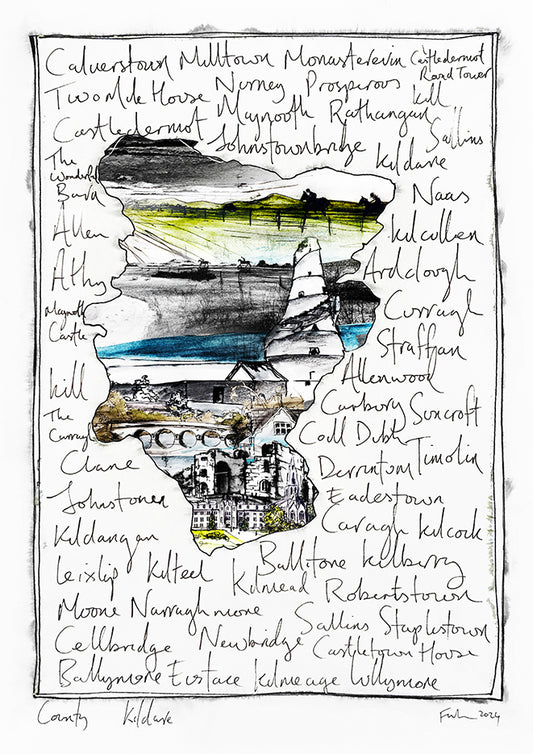 Calverstown Milltown Monasterevin Castledermot
Round Tower
Two Mile House Nurney Prosperous Kill
Castledermot Maynooth Rathangan Sallins
Johnstownbridge Kildare
The
Wonderful
Barn
Naas
Allen
Kilcullen
Athy
Ardclough
Maynooth
Castle
Curragh
Straffan
Kill
Allenwood
The
Curragh
Carbury Suncroft
Coill Dubh
Clane
Derrinturn Timolin
Johnstown
Eadestown
Kildangan
Caragh Kilcock
Leixlip Kilteel Kilmead Ballitore Kilberry
Moone Narraghmore Robertstown
Sallins Staplestown
Cellbridge Newbridge Castletown House
Ballymore Eustace Kilmeage Tullymore
County Kildare
2024